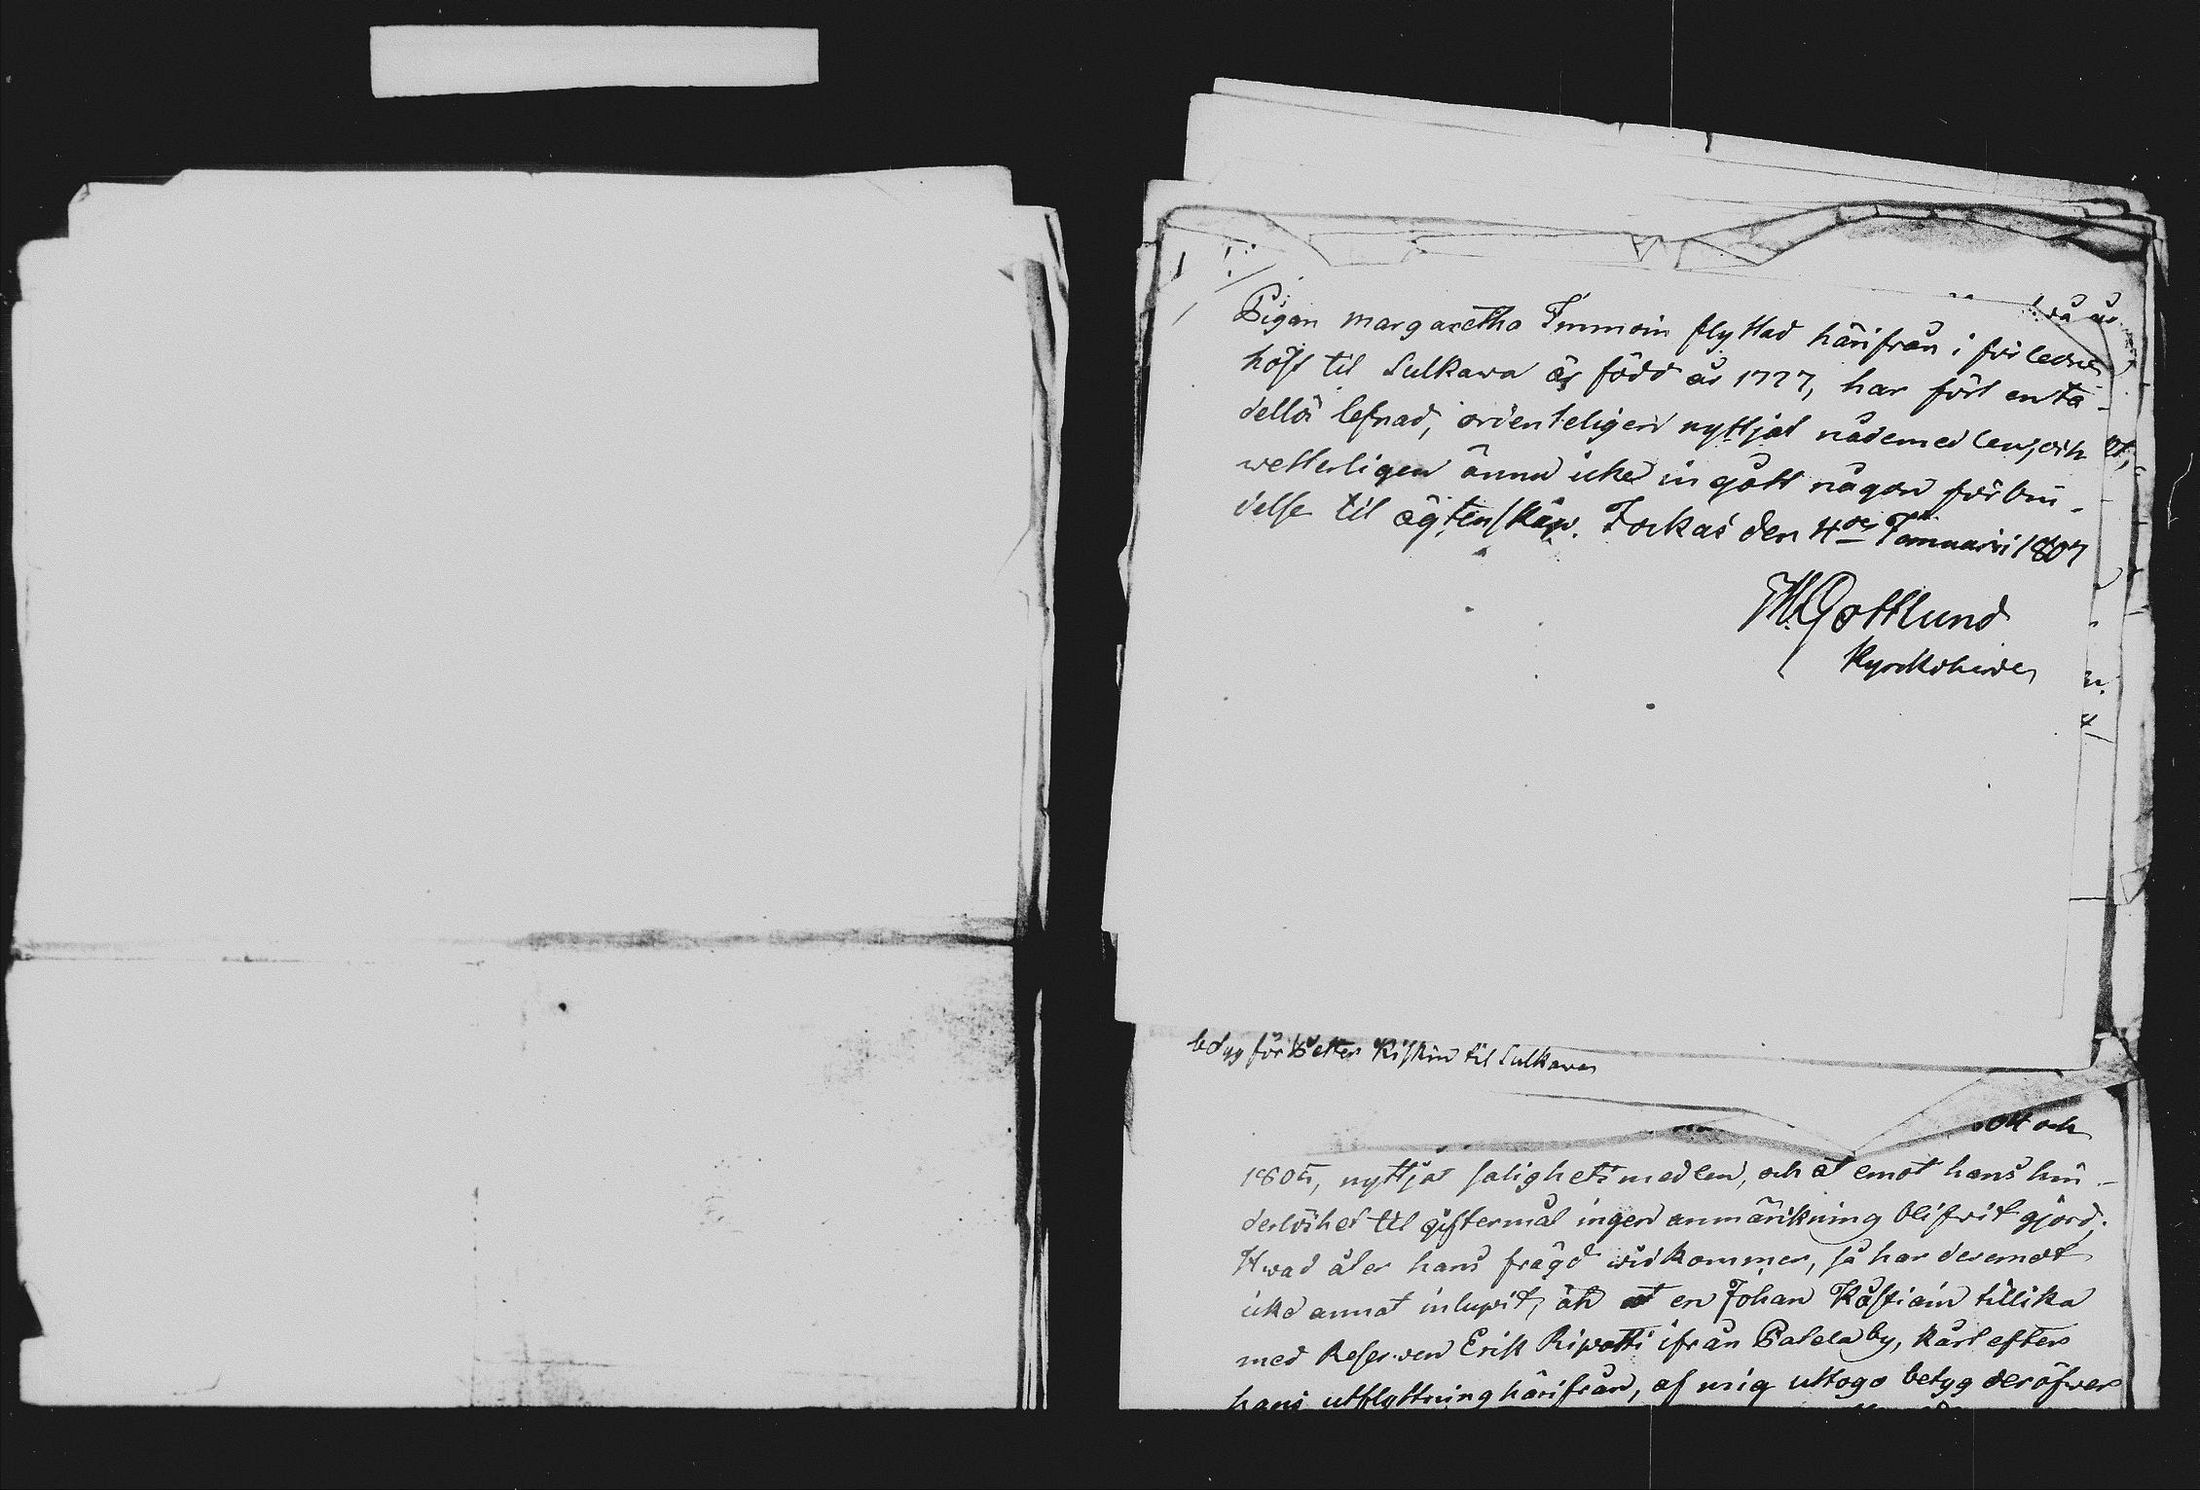 Pigan Margaretha Immoin flyttad härifrån i förledne
höst til Sulkawa är född år 1777, har fört en ta-
dellös lefnad, ordenteligen nyttjat nådemedlen, och
wetterligen ännu icke ingått någon förbin-
delse til ägtenskap. Jockas den 4de Januarii 1807
M Gottlund
Kyrckoherde
betyg för Petter Kiskin til Sulkawa
och
1805, nyttjat salighetsmedlen, och at emot hans hin-
derlöshet til giftermål ingen anmärkning blifwit gjord.
Hwad åter hans frägd widkommer, så har deremot
icke annat inlupit, än at en Johan Kåstiain tillika
med Reserven Erik Ripatti ifrån Patala by, kårt efter
hans utflyttning härifrån, af mig uttogo betyg deröfwer